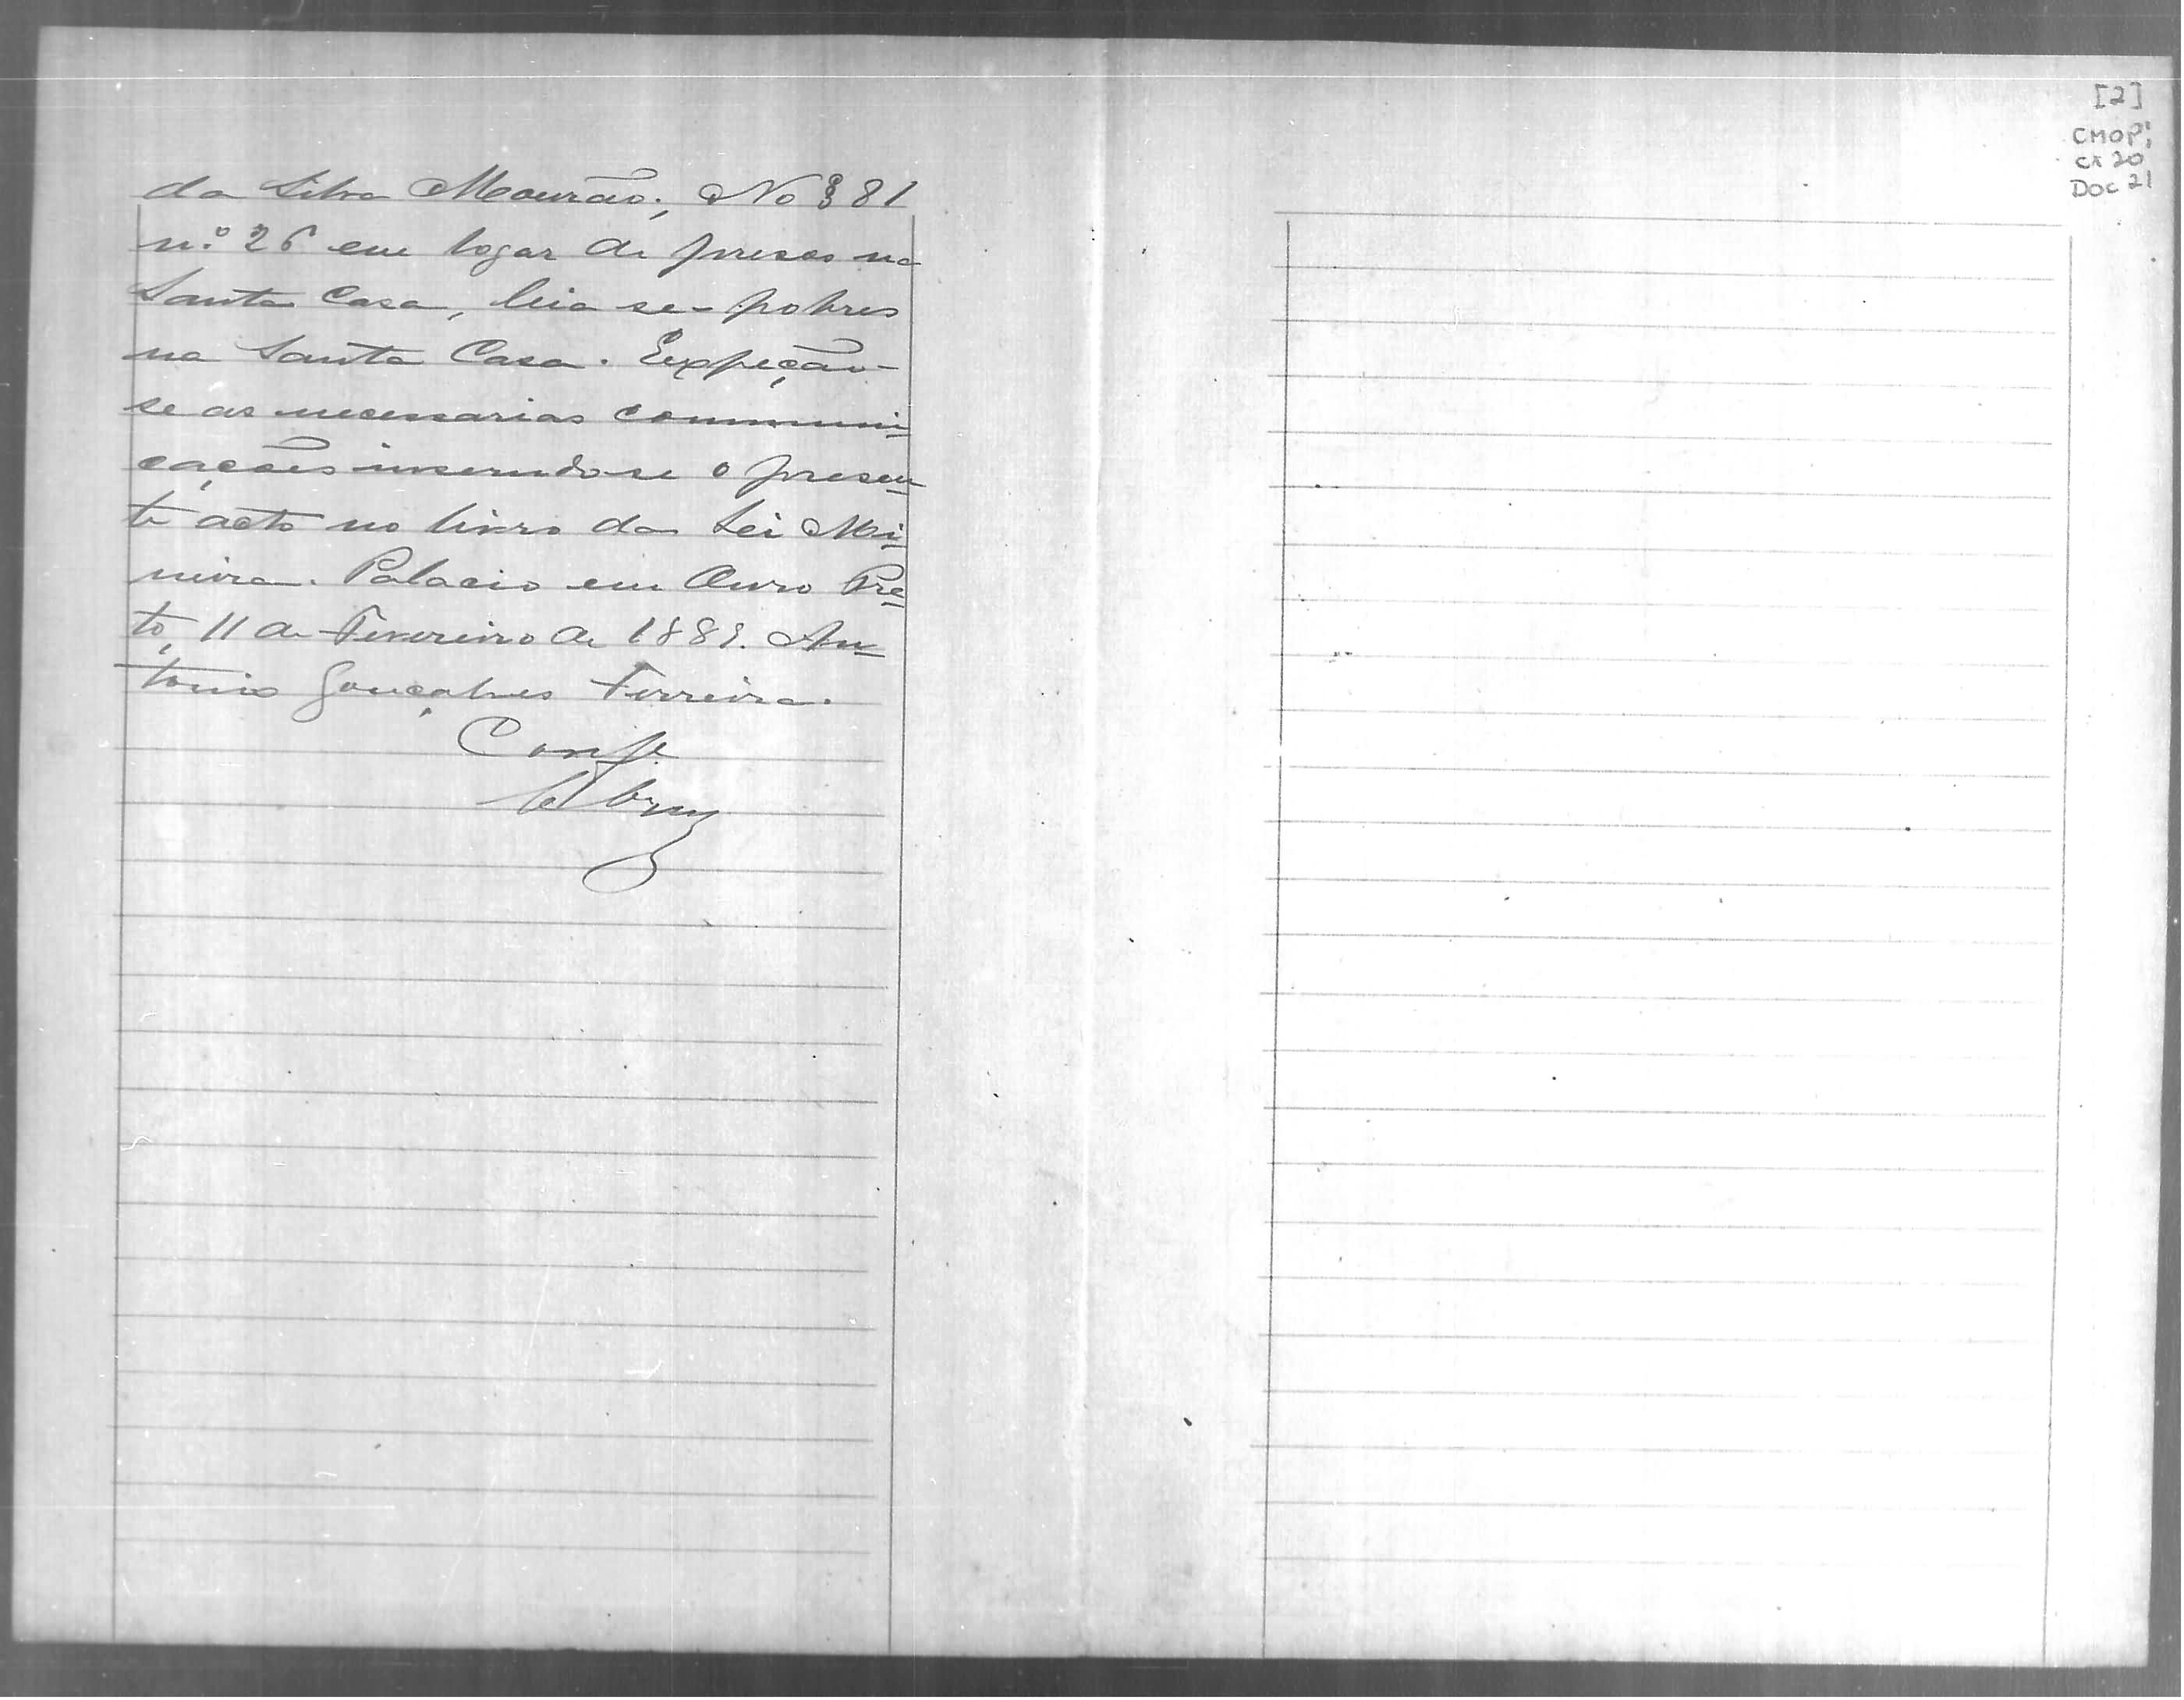 da Silva Mourão; No § 81
n.º 26 em logar de presos na
Santa Casa, leia se - pobres
na Santa Casa. Expeção-
se as necessarias communi-
cações inserindo-se o presen-
te acto no livro da Lei Mi-
neira. Palacio em Ouro Pre-
to, 11 de Fevereiro de 1889. An-
tonio Gonçalves Ferreira.
Conf.e
[2]
CMOP:
cx 20
Doc 21